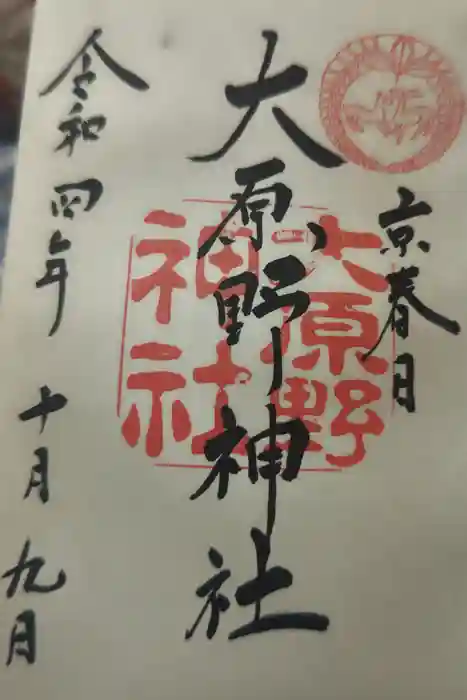 京春日
大原野神社
大原野
神社
令和四年十月九日